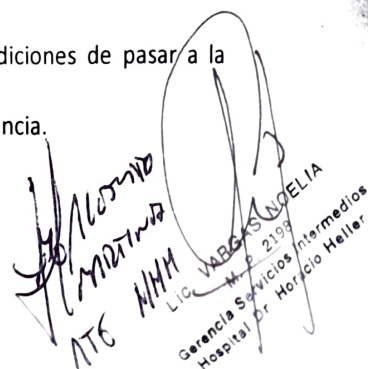 diciones de pasar a la
ncia.
MARTINA
ATE
Lic. VARGAS NOELIA
M.P. 2198
Gerencia Servicios Intermedios
Hospital Dr Horacio Heller